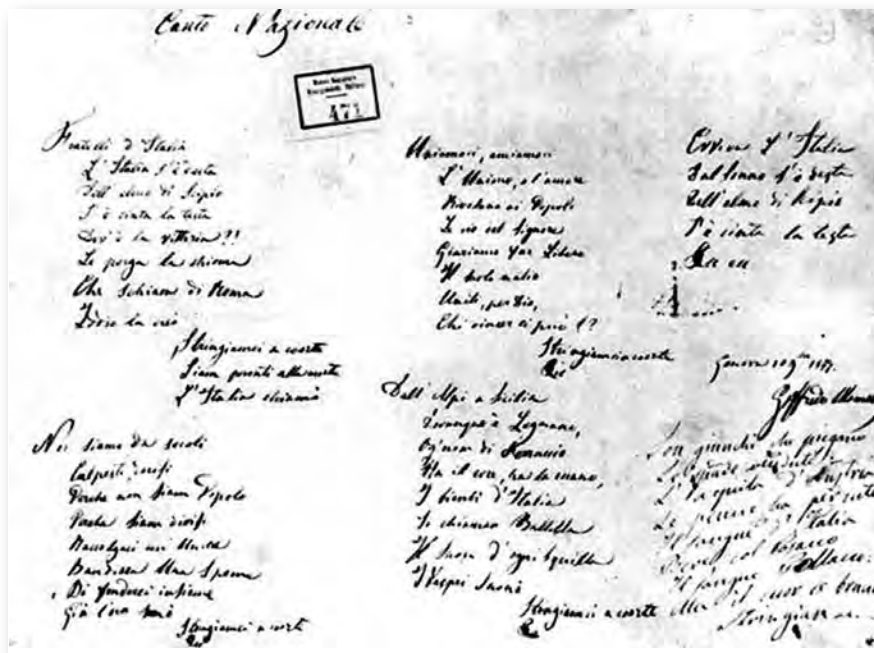 Canto Nazionale
Fratelli d'Italia
L'Italia s'è desta
Dell'elmo di Scipio
S'è cinta la testa
Dov'è la vittoria?!
Le porga la chioma
Che schiava di Roma
Iddio la creò
Stringiamci a coorte
Siam pronti alla morte
L'Italia chiamò
Noi siamo da secoli
Calpesti, derisi
Perché non siam Popolo
Perché siam divisi
Raccolgaci un'Unica
Bandiera una Speme
Di fonderci insieme
Già l'ora sonò
Stringiamci a coorte
Uniamoci, amiamoci
L'Unione, e l'amore
Rivelano ai Popoli
Le vie del Signore
Giuriamo far Libero
Il suolo natio
Uniti, per Dio,
Chi vincer ci può!?
Stringiamci a coorte
Dall'Alpi a Sicilia
Dovunque è Legnano,
Ogn'uom di Ferruccio
Ha il core, ha la mano,
I bimbi d'Italia
Si chiaman Balilla
Il suon d'ogni squilla
I Vespri suonò
Stringiamci a coorte
Evviva l'Italia
Dal sonno s'è desta
Dell'elmo di Scipio
S'è cinta la testa
Genova
Goffredo Mameli
Son giunchi che piegano
Le spade vendute
L'Aquila d'Austria
Le penne ha perdute
Il sangue d'Italia
Bevé col Cosacco
Il sangue Polacco:
Ma il cuor le bruciò
Stringiam